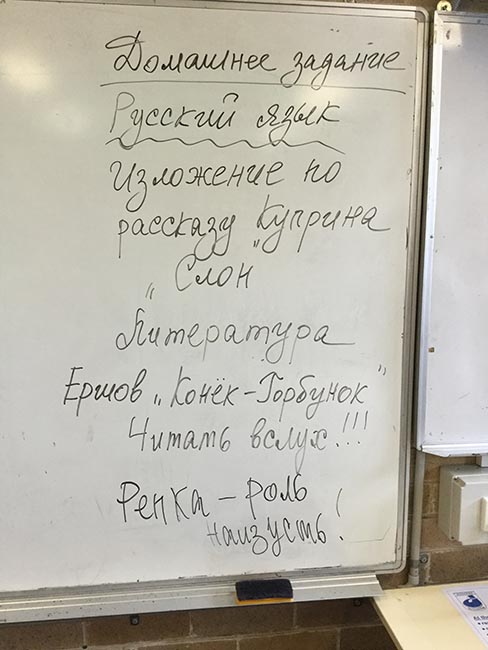 Домашнее задание
Русский язык
Изложение по
рассказу Куприна
„Слон"
Литература
Ершов „Конёк-Горбунок"
Читать вслух!!!
Репка – роль
наизусть!